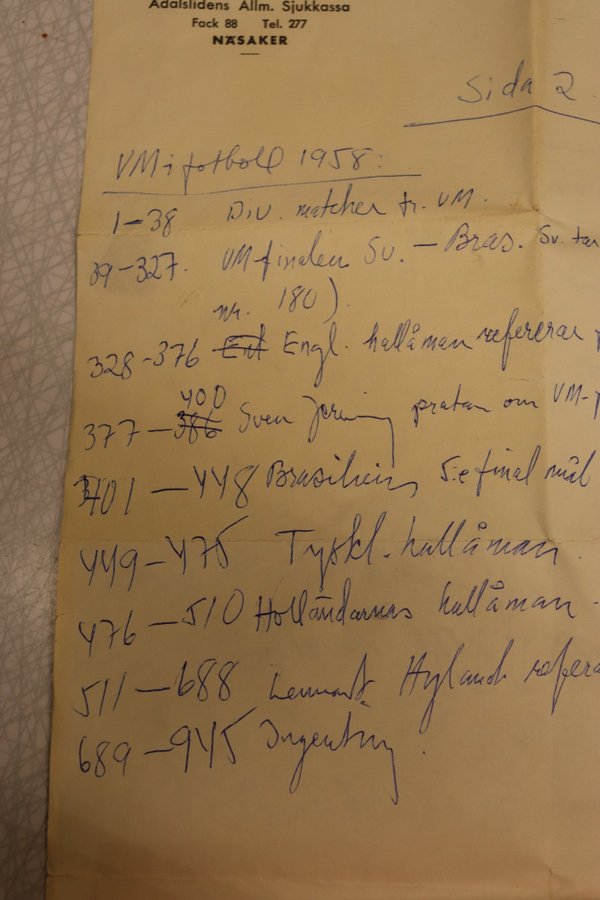 Ådalslidens Allm. Sjukkassa
Fack 88 Tel. 277
NÄSAKER
Sida 2.
VM i fotboll 1958:
1–38 Div. matcher fr. VM.
39–327. VM-finalen Sv. – Bras. Sv. tar
nr. 180).
328–376 Engl. hallåman refererar
400
377–386 Sven Jerring pratar om VM-
401–448 Brasiliens 5:e final mål
449–475 Tyskl. hallåman.
476–510 Holländarnas hallåman.
511–688 Lennart Hyland refera
689–945 Ingenting.